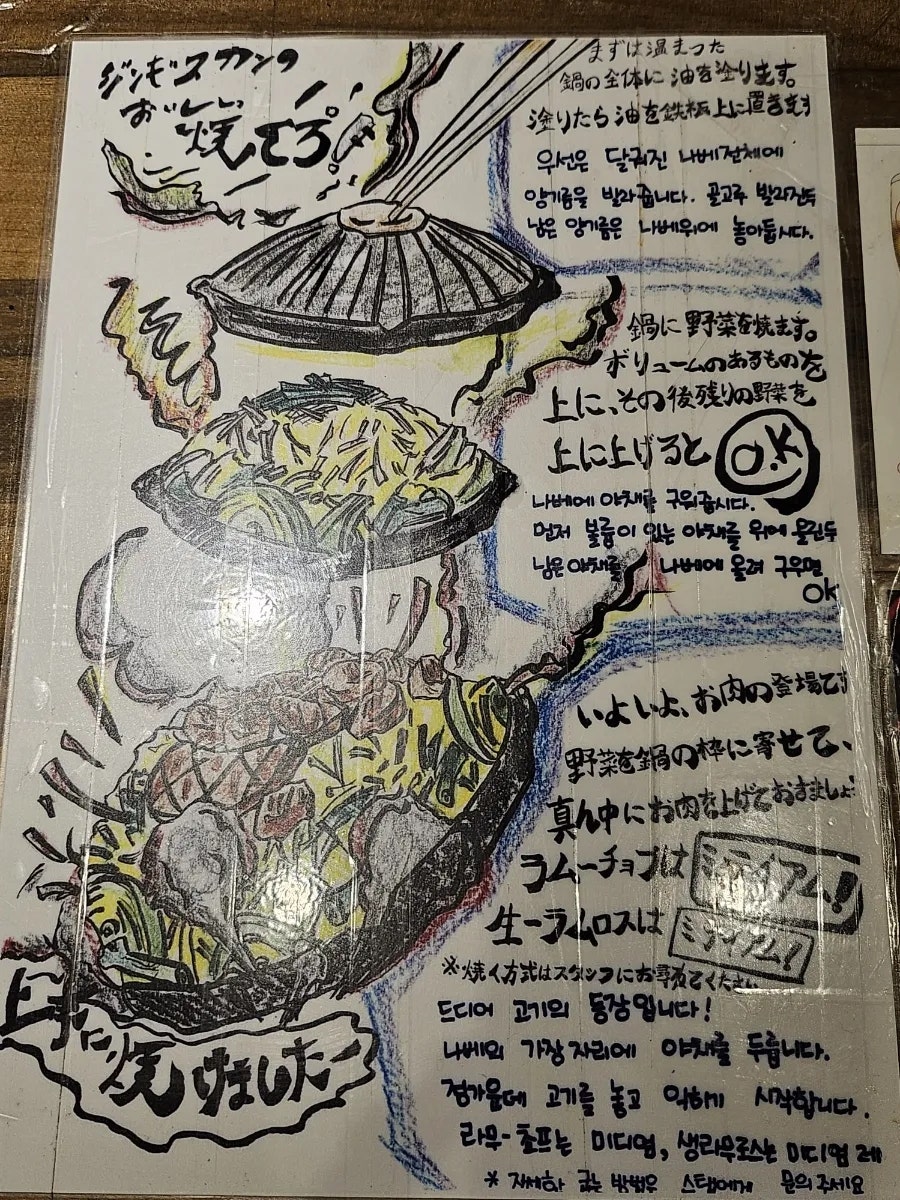 ジンギスカンの
おいしい
焼てぷ
まずは温まった
鍋の全体に油を塗ります。
塗りたら油を鉄板上に置きます
우선은 달궈진 나베전체에
양기름을 발라줍니다. 골고루 발라진두
남은 양기름은 나베위에 놓아둡시다.
鍋に野菜を焼ます。
ボリュームのあるものを
上に、その後残りの野菜を
上に上げると O.K
나베에 야채를 구워줍시다.
먼저 볼륨이 있는 야채를 위에 올린두
남은 야채를 나베에 올려 구우면
OK
いよいよ、お肉の登場です
野菜を鍋の枠に寄せて、
真ん中にお肉を上げておきましょ
ラムーチョプは ミディアム!
生ーラムロスは ミディアム!
※焼く方式はスタッフにお尋ねてください
드디어 고기의 등장입니다!
나베의 가장자리에 야채를 두릅니다.
정가운데 고기를 놓고 익히기 시작합니다.
라무-초프는 미디엄, 생라무로스는 미디엄 레
* 자세한 굽는 방법은 스탭에게 문의주세요
上手に
焼けましたー